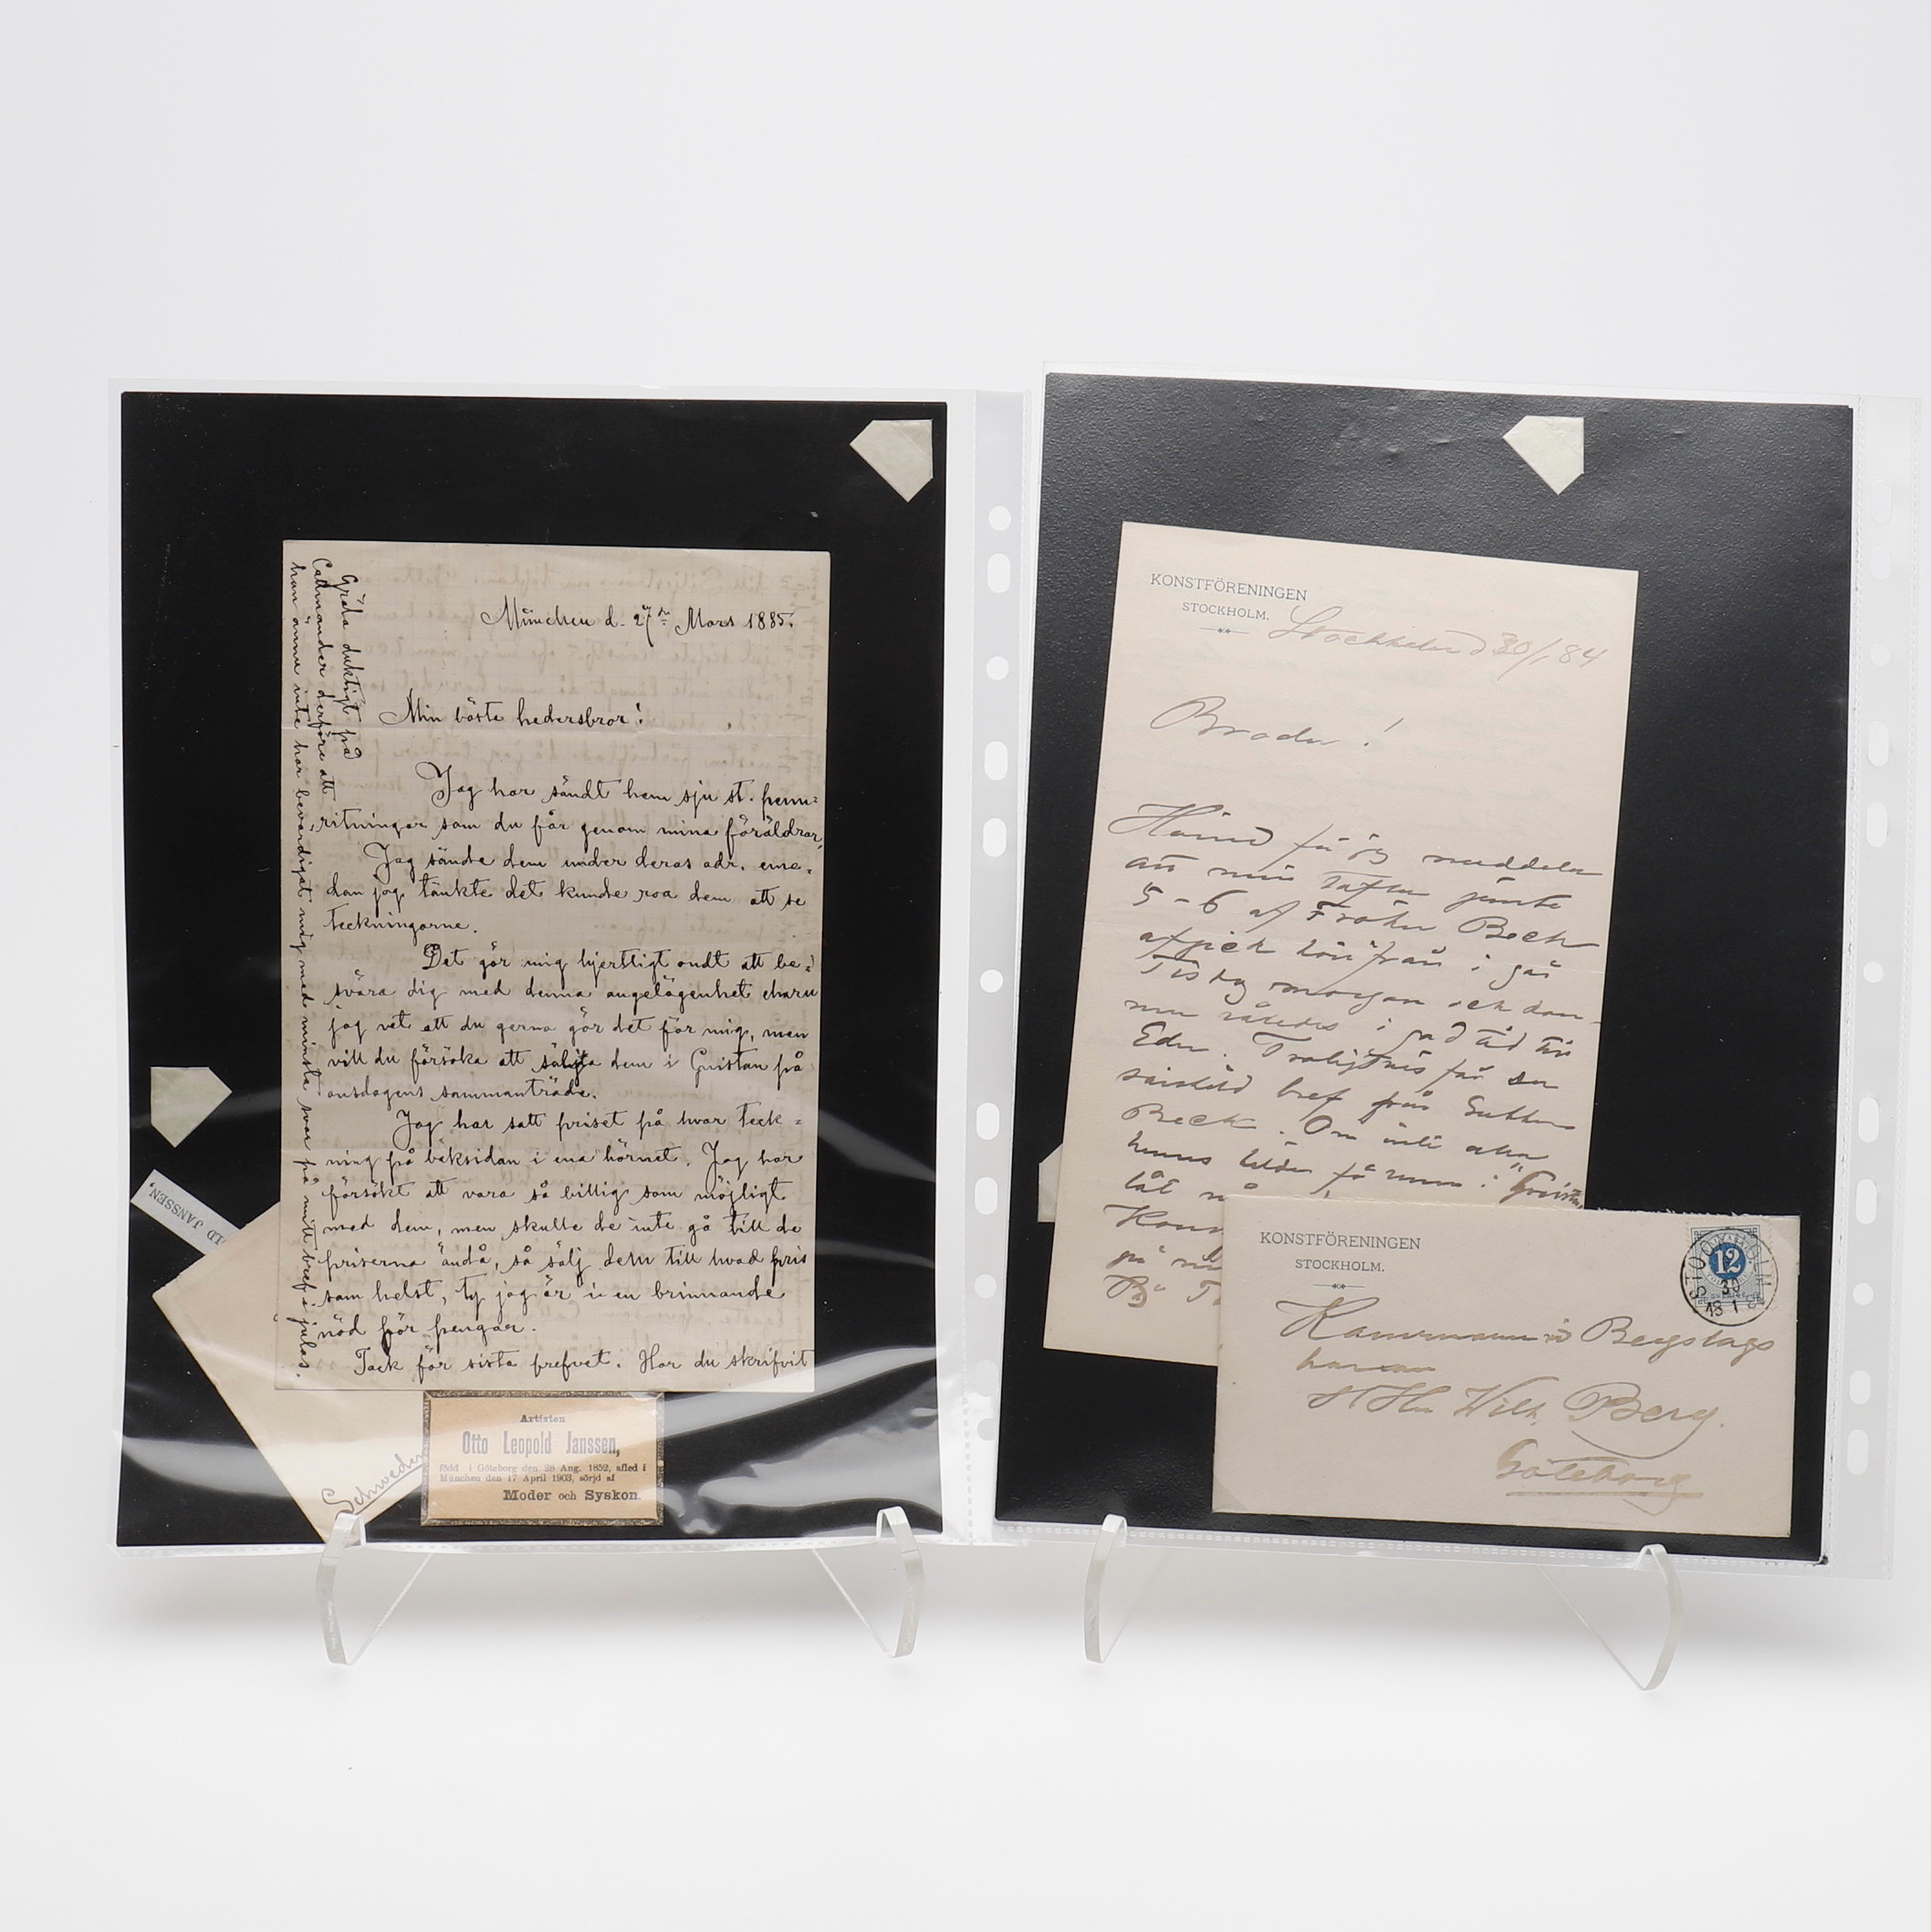 München d. 27de Mars 1885.
Min bäste hedersbror!
Jag har sändt hem sju st. penn=
ritningar som du får genom mina föräldrar,
Jag sände dem under deras adr. eme-
dan jag tänkte det kunde roa dem att se
teckningarne.
Det gör mig hjertligt ondt att be=
svära dig med denna angelägenhet ehuru
jag vet att du gerna gör det för mig, men
vill du försöka att sälja dem i Gnistan på
onsdagens sammanträde.
Jag har satt priset på hvar teck=
ning på baksidan i ena hörnet. Jag har
försökt att vara så billig som möjligt
med dem, men skulle de inte gå till de
priserna ändå, så sälj dem till hvad pris
som helst, ty jag är i en brinnande
nöd för pengar.
Tack för sista brefvet. Har du skrifvit
Gräla duktigt på
derföre att
han ännu inte har bevärdigat mig med minsta svar på mitt bref i julas.
LD JANSSEN,
Schweden
Artisten
Otto Leopold Janssen,
född i Göteborg den 28 Aug. 1852, afled i
München den 17 April 1903, sörjd af
Moder och Syskon.
KONSTFÖRENINGEN
STOCKHOLM.
Stockholm d 30/1 84
Broder!
Härmed får jag meddela
att min Tafla jämte
5-6 af Fröken Beck
afgick härifrån i går
morgon och
i god tid till
Eder. Troligtvis får du
särskild bref från
Beck. Om inte alla
hennes bilder få rum i "Gnistan
låt
på
KONSTFÖRENINGEN
STOCKHOLM.
12
STOCKHOLM
30
1
Kamraren i Bergslags
banan
Herr Wilh. Berg.
Göteborg